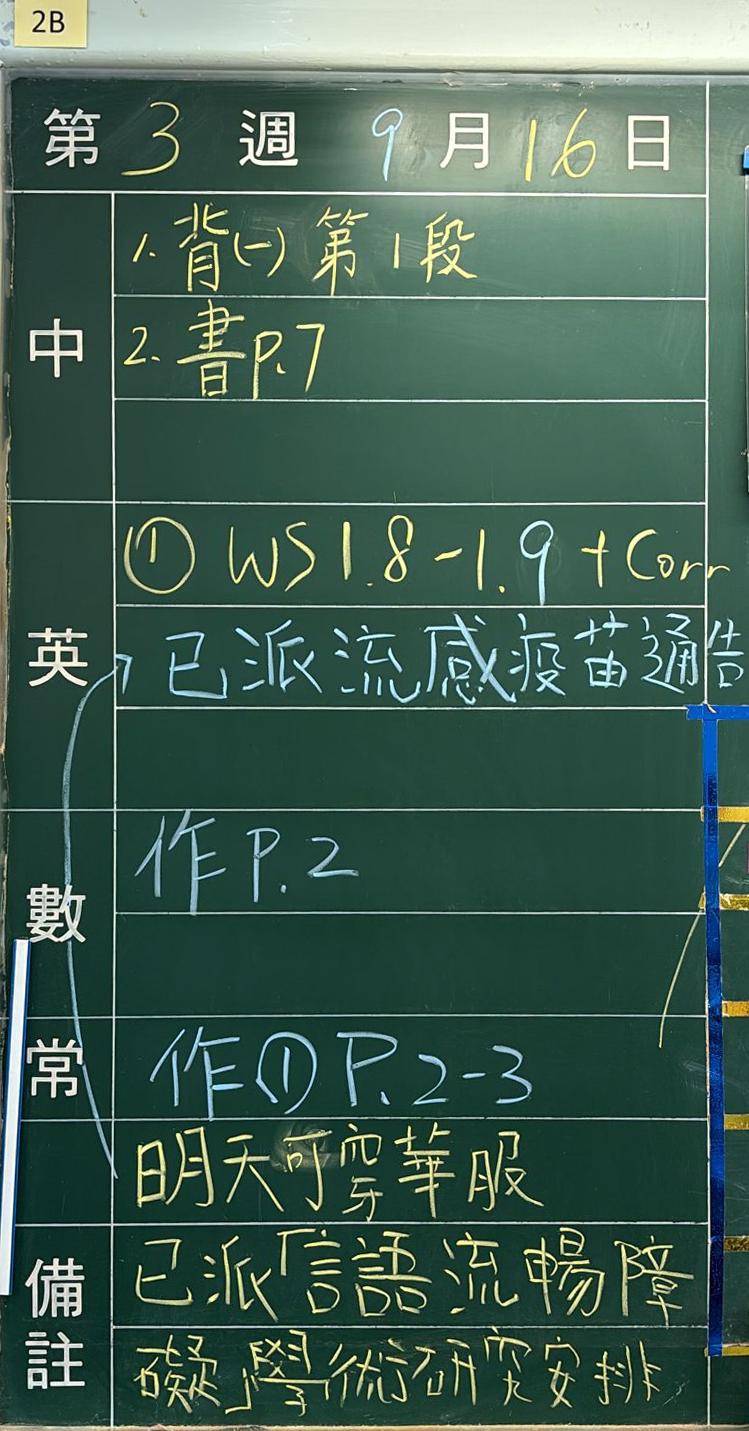 2B
第 3 週 9 月 16 日
中
1. 背(一) 第1段
2. 書p.7
英
① WS 1.8-1.9 + Corr
已派流感疫苗通告
數
作 P.2
常
作① P.2-3
明天可穿華服
備註
已派「言語流暢障
礙」學術研究安排